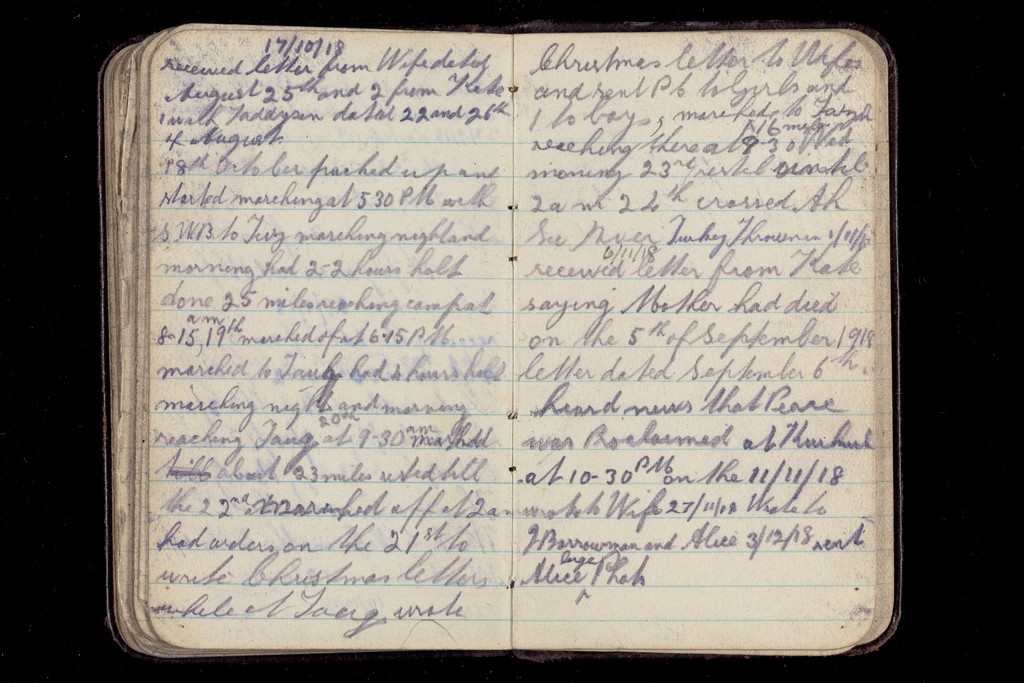 17/10/18
received letter from Wife dated
August 25th and 2 from Kate
1 with Taddysen dated 22 and 26th
4 August.
18th October packed up and
started marching at 5 30 PM with
S.W.B. to marching night and
morning had 2-2 hours halt
done 25 miles reaching camp at
am
8-15, 19th marched of at 6-15 P.M.
marched to Taug had 4 hours halt
marching night and morning
20th
reaching Taug at 9-30 am marched
about 23 miles rested till
the 22nd marched off at 2 am
had orders on the 21st to
write Christmas letters
while at Taug wrote
Christmas letter to Wife
and sent P6 to Girls and
1 to boys, marched to
16 miles
reaching there at 8-30 Wed
morning 23rd rested until
2 am 24th crossed Ak
Su River Turkey Thrown in 1/11/18
6/11/18
received letter from Kate
saying Mother had died
on the 5th of September 1918
letter dated September 6th.
heard news that Peace
was Proclaimed at
at 10-30 PM on the 11/11/18
wrote to Wife 27/11/18 Wrote to
J Borrowman and Alice 3/12/18 sent
large
Alice Phot